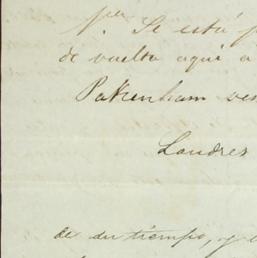 Se está
de vuelta aquí a
Pakenham
Londres
de su tiempo, y